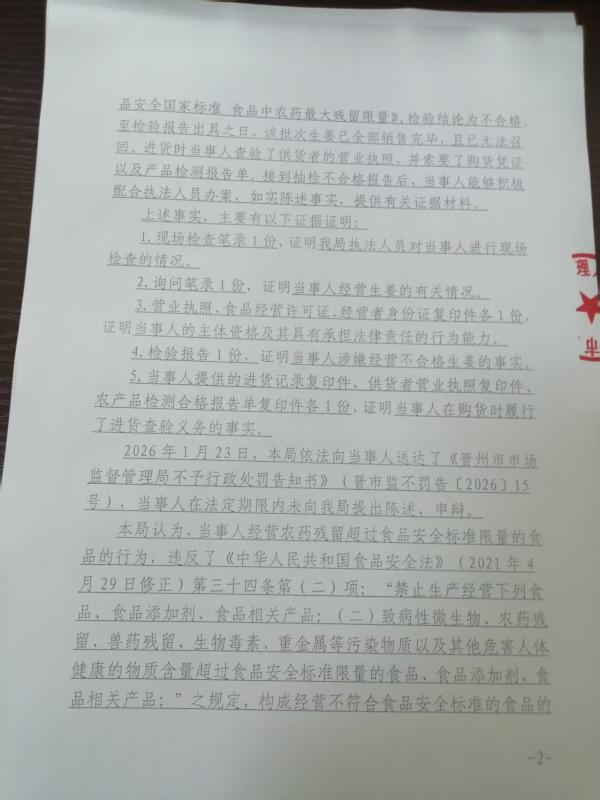 品安全国家标准 食品中农药最大残留限量》,检验结论为不合格。
至检验报告出具之日，该批次生姜已全部销售完毕，且已无法召
回。进货时当事人查验了供货者的营业执照，并索要了购货凭证
以及产品检测报告单。接到抽检不合格报告后、当事人能够积极
配合执法人员办案，如实陈述事实，提供有关证据材料。
上述事实，主要有以下证据证明：
1.现场检查笔录1份，证明我局执法人员对当事人进行现场
检查的情况。
2.询问笔录1份，证明当事人经营生姜的有关情况。
3.营业执照、食品经营许可证、经营者身份证复印件各1份，
证明当事人的主体资格及其具有承担法律责任的行为能力。
4.检验报告1份，证明当事人涉嫌经营不合格生姜的事实。
5.当事人提供的进货记录复印件、供货者营业执照复印件、
农产品检测合格报告单复印件各1份，证明当事人在购货时履行
了进货查验义务的事实。
2026年1月23日，本局依法向当事人送达了《晋州市市场
监督管理局不予行政处罚告知书》（晋市监不罚告〔2026〕15
号），当事人在法定期限内未向我局提出陈述、申辩。
本局认为，当事人经营农药残留超过食品安全标准限量的食
品的行为，违反了《中华人民共和国食品安全法》（2021年4
月29日修正）第三十四条第（二）项：“禁止生产经营下列食
品、食品添加剂、食品相关产品：（二）致病性微生物、农药残
留、兽药残留、生物毒素、重金属等污染物质以及其他危害人体
健康的物质含量超过食品安全标准限量的食品、食品添加剂、食
品相关产品；”之规定，构成经营不符合食品安全标准的食品的
-2-
理
市